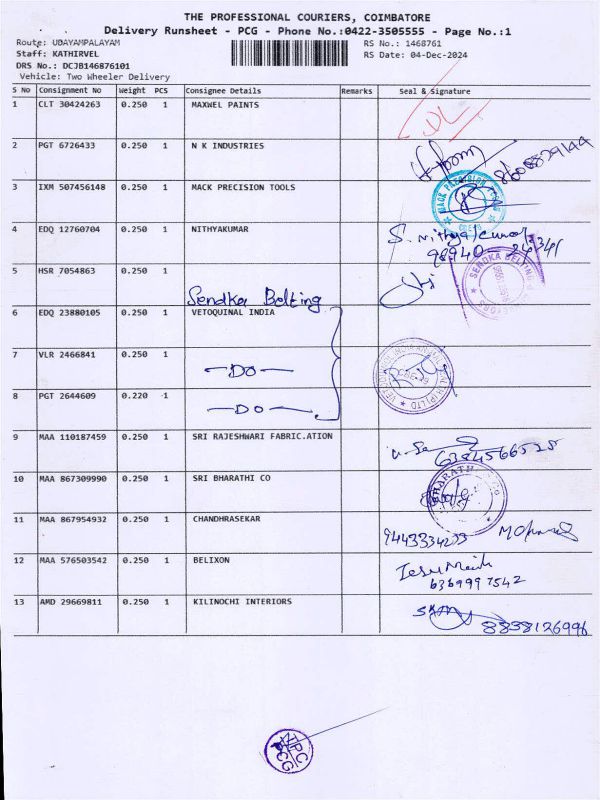 THE PROFESSIONAL COURIERS, COIMBATORE
Delivery Runsheet - PCG - Phone No.:0422-3505555 - Page No.:1
Route: UDAYAMPALAYAM
RS No.: 1468761
Staff: KATHIRVEL
RS Date: 04-Dec-2024
DRS No.: DCJB146876101
Vehicle: Two Wheeler Delivery
S No Consignment No Weight PCS Consignee Details Remarks Seal & Signature
1 CLT 30424263 0.250 1 MAXWEL PAINTS
2 PGT 6726433 0.250 1 N K INDUSTRIES
3 IXM 507456148 0.250 1 MACK PRECISION TOOLS
MACK PRECISION TOOLS
4 EDQ 12760704 0.250 1 NITHYAKUMAR S. Nithyakumar
5 HSR 7054863 0.250 1
Sendka Belting
SENDKA BELTING
6 EDQ 23880105 0.250 1 VETOQUINAL INDIA
7 VLR 2466841 0.250 1
—DO—
8 PGT 2644609 0.220 1
—DO—
9 MAA 110187459 0.250 1 SRI RAJESHWARI FABRIC.ATION
6384566525
10 MAA 867309990 0.250 1 SRI BHARATHI CO
11 MAA 867954932 0.250 1 CHANDHRASEKAR
9443334233
12 MAA 576503542 0.250 1 BELIXON
6369997542
13 AMD 29669811 0.250 1 KILINOCHI INTERIORS
8838126996
TPC
PCG